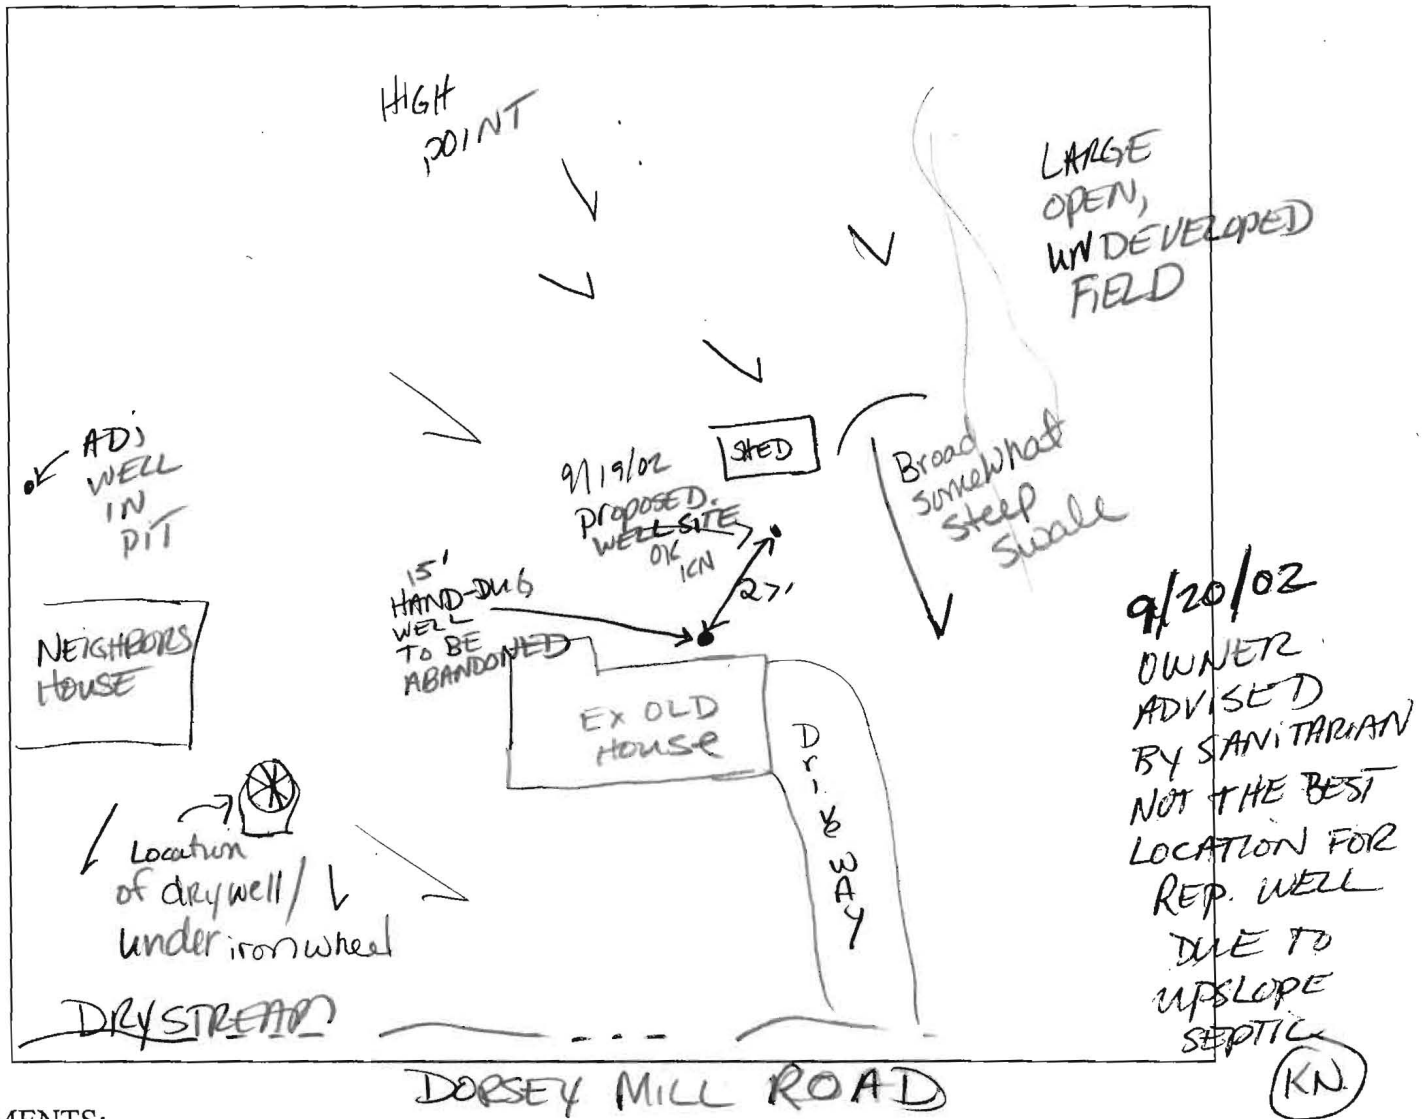 HIGH
POINT
LARGE
OPEN,
UNDEVELOPED
FIELD
ADJ
WELL
IN
PIT
SHED
9/19/02
PROPOSED
WELL SITE
OK
KN
Broad
somewhat
steep
swale
15'
HAND-DUG
WELL
TO BE
ABANDONED
27'
NEIGHBORS
HOUSE
EX OLD
HOUSE
DriveWAY
Location
of drywell/
under iron wheel
DRY STREAM
9/20/02
OWNER
ADVISED
BY SANITARIAN
NOT THE BEST
LOCATION FOR
REP. WELL
DUE TO
UPSLOPE
SEPTIC
KN
DORSEY MILL ROAD